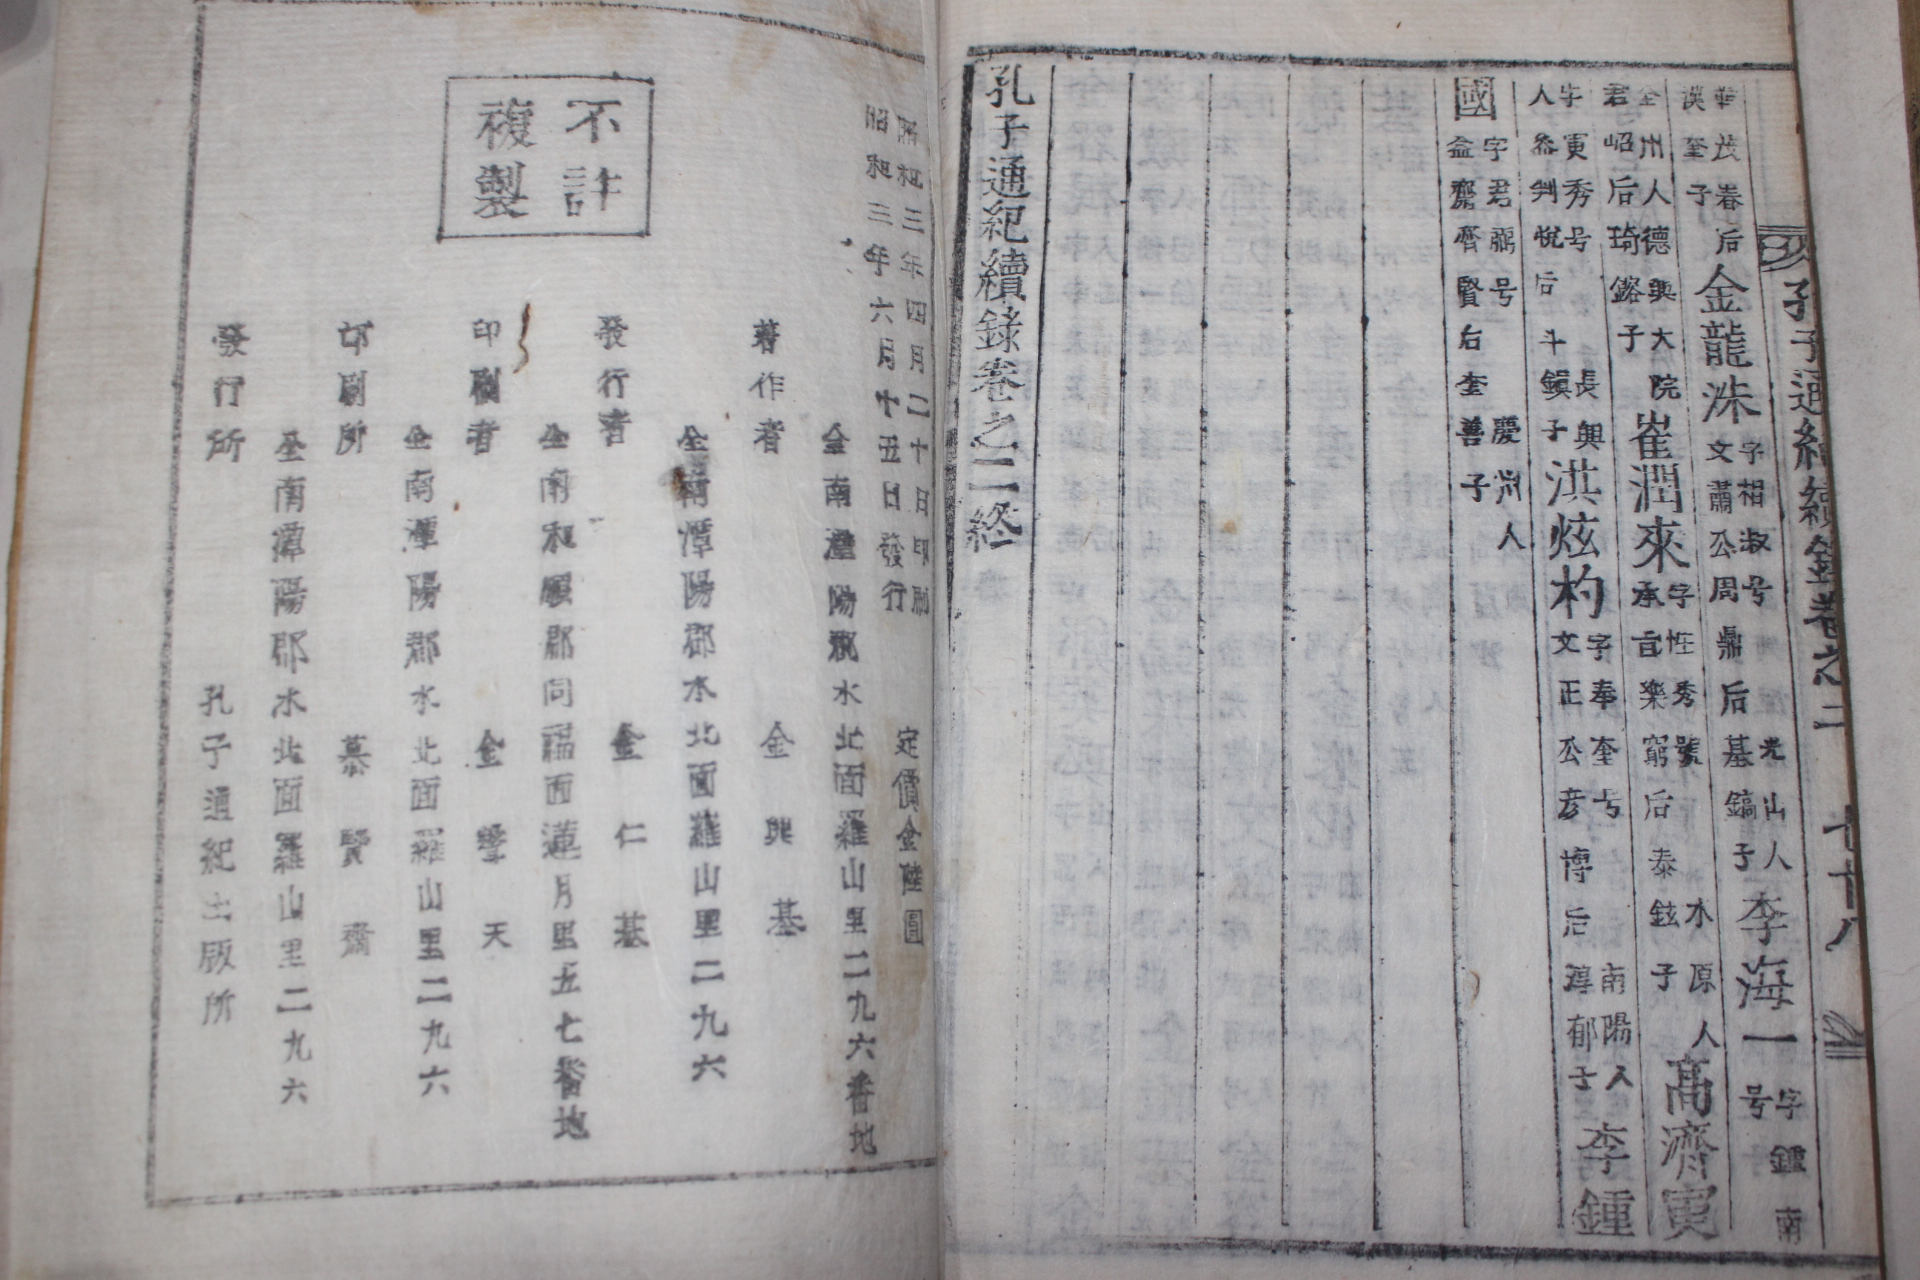 孔子通紀續錄卷之二 七十八
華茂春后
漢奎子
金龍洙
字相淑号
文肅公周鼎后基鎬子
光山人
李海一
字鍾
号南
全州人德興大院
君岹后琦鎔子
崔潤來
字性秀號
承旨樂窮后泰鉉子
水原人
高濟寅
字寅秀号
人參判悅后斗鎭子
長興
洪炫杓
字奉奎号
文正公彦博后淳郁子
南陽人
李鍾
國
字君鼎号
益齋齊賢后奎善子
慶州人
孔子通紀續錄卷之二終
昭和三年四月二十日印刷
昭和三年六月十五日發行
定價金陸圓
不許
複製
全南潭陽郡水北面羅山里二九六番地
著作者 金興基
全南潭陽郡水北面羅山里二九六
發行者 金仁基
全南和順郡同福面蓮月里五七番地
印刷者 金擎天
全南潭陽郡水北面羅山里二九六
印刷所 慕賢齋
全南潭陽郡水北面羅山里二九六
發行所 孔子通紀出版所